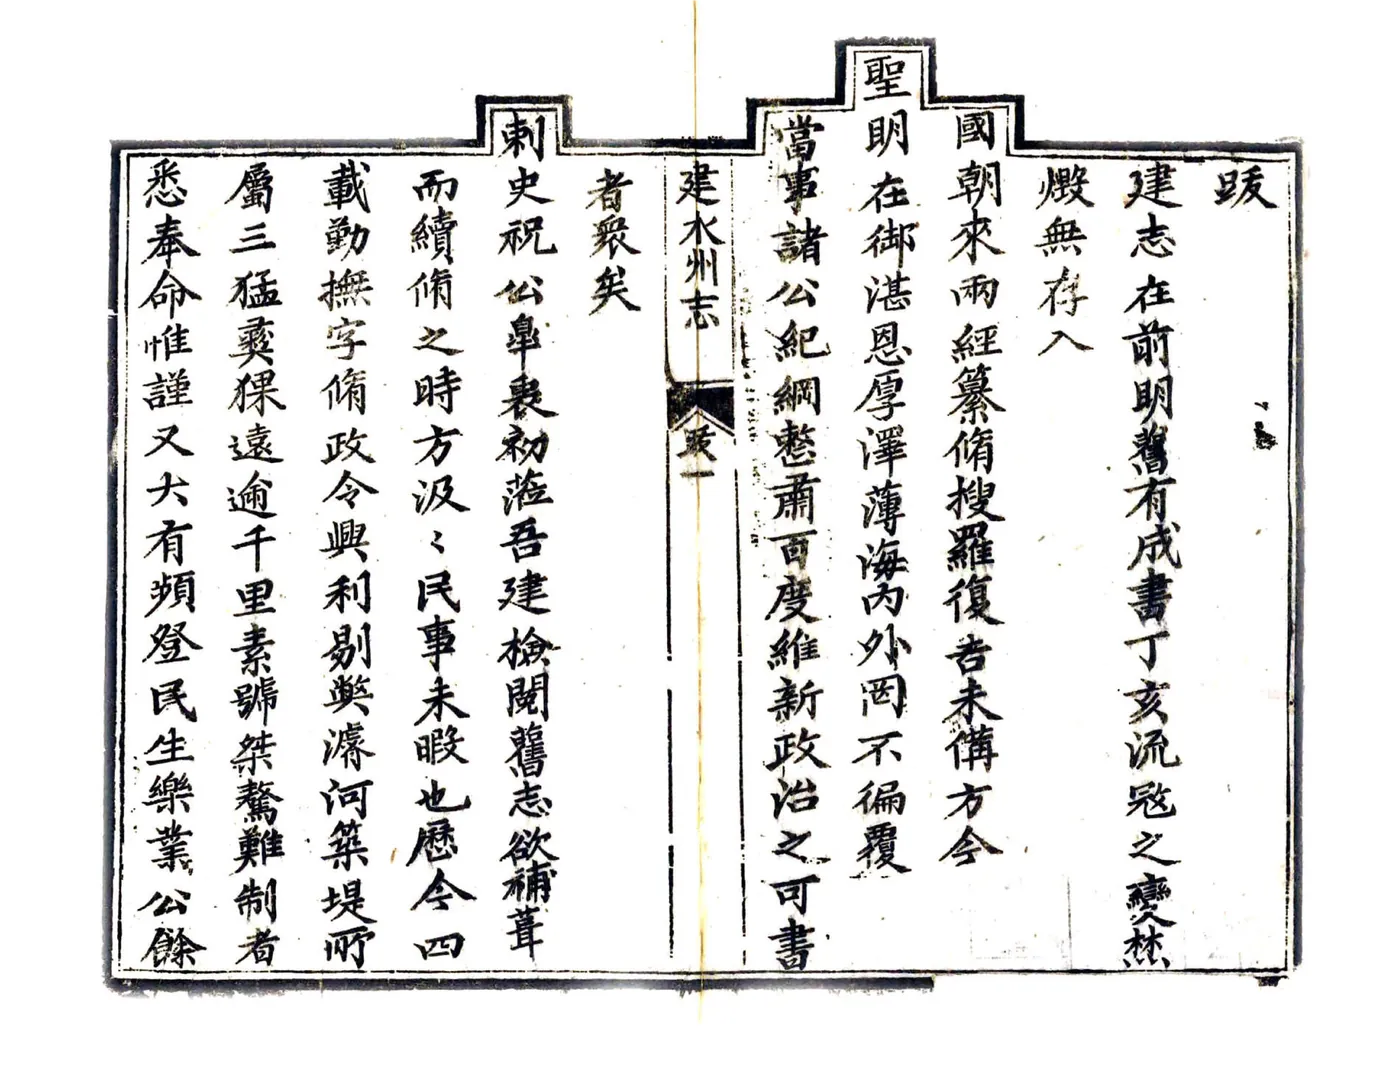 跋
建志在前明舊有成書丁亥流寇之變焚
燬無存入
國朝來兩經纂脩搜羅復否未備方今
聖明在御湛恩厚澤薄海內外罔不徧覆
當事諸公紀綱整肅百度維新政治之可書
建水州志
跋一
者衆矣
刺史祝公皐裘初蒞吾建檢閱舊志欲補葺
而續脩之時方汲〻民事未暇也歷今四
載勤撫字脩政令興利剔獘濬河築堤所
屬三猛彞猓遠逾千里素號桀驁難制者
悉奉命惟謹又大有頻登民生樂業公餘